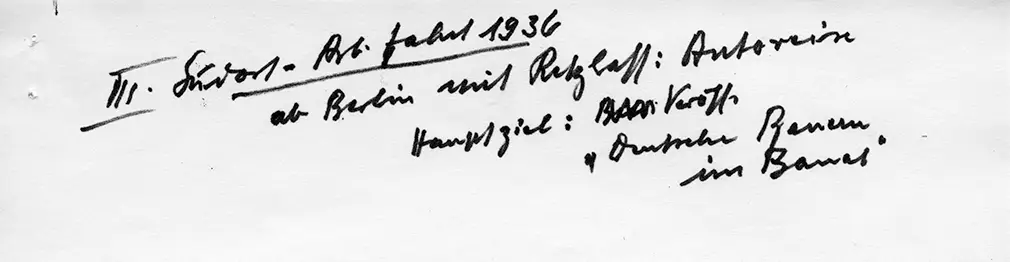 III. Südost-Arb. fahrt 1936
ab Berlin mit Retzlaff: Autoreise
Hauptziel: Veröff.
"Deutsche Bauern
im Banat"